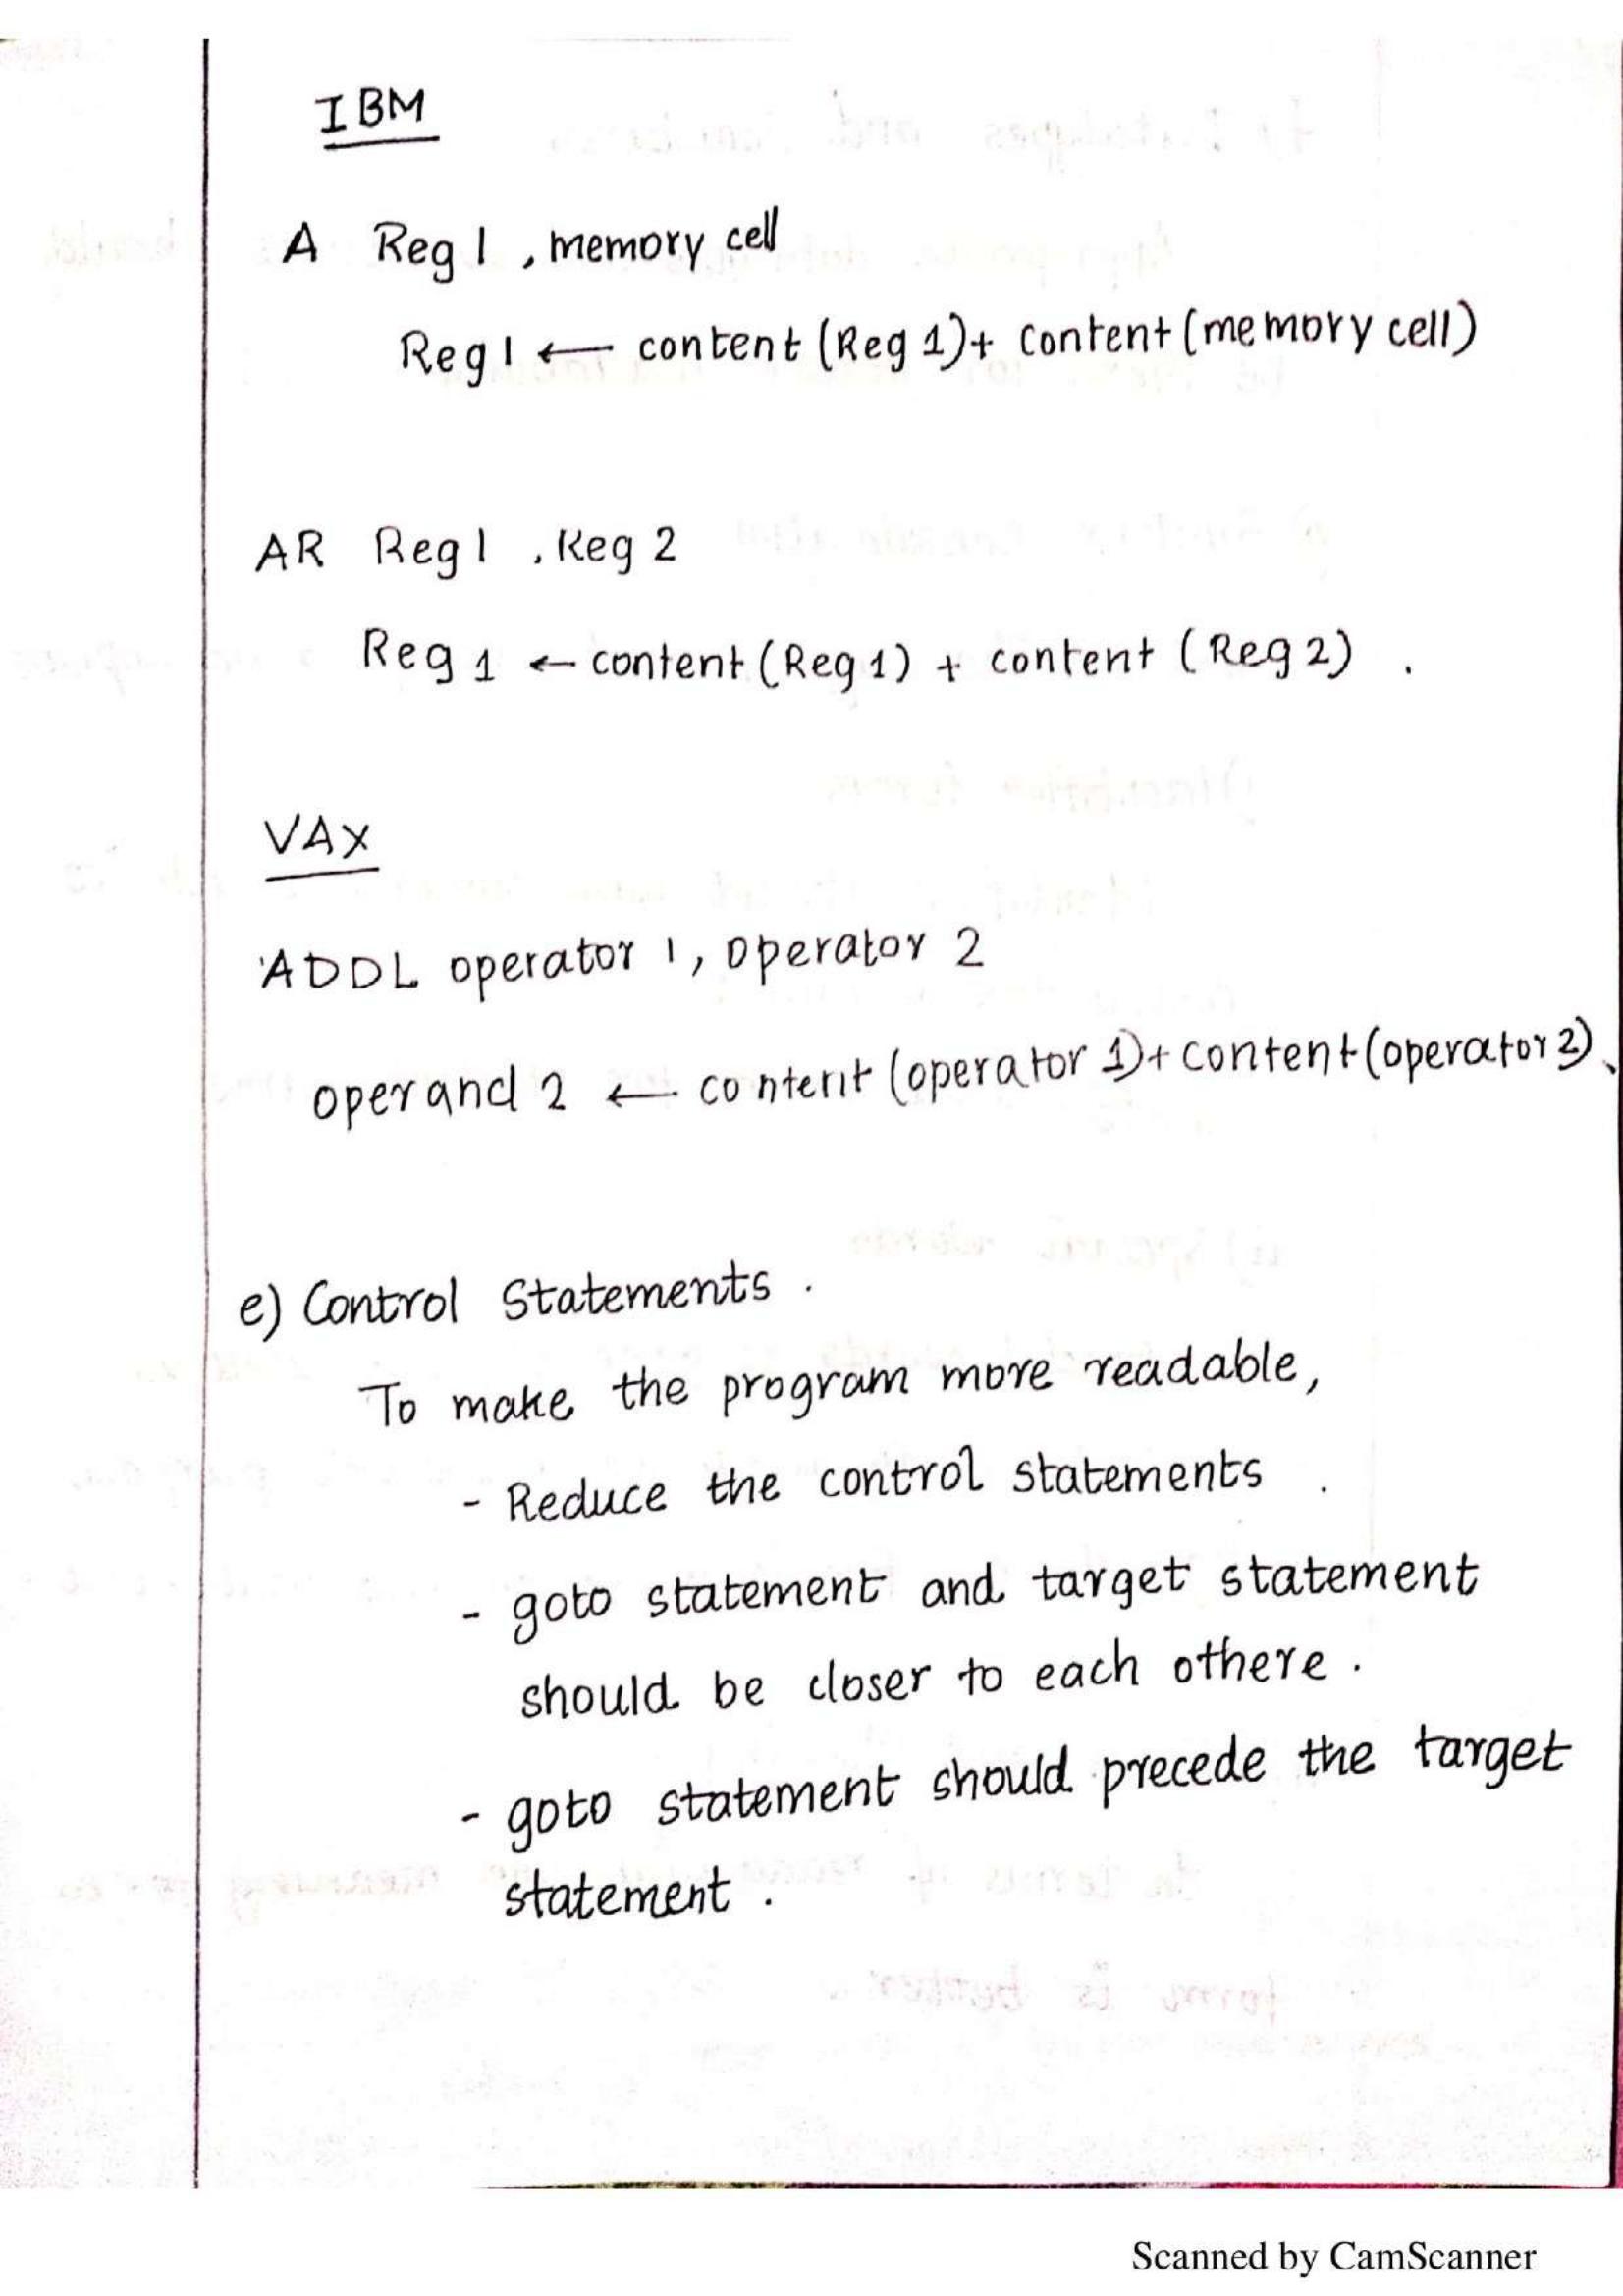 IBM
A Reg 1 , memory cell
Reg 1 ← content (Reg 1)+ content (memory cell)
AR Reg 1 , Reg 2
Reg 1 ← content (Reg 1) + content (Reg 2) .
VAX
ADDL operator 1, operator 2
operand 2 ← content (operator 1)+ content (operator 2)
e) Control Statements .
To make the program more readable,
- Reduce the control statements .
- goto statement and target statement
should be closer to each othere .
- goto statement should precede the target
statement .
Scanned by CamScanner